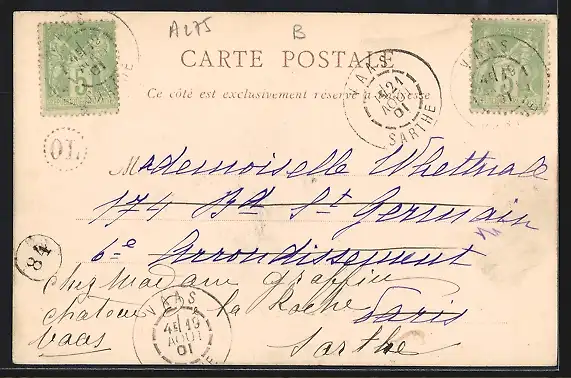 A275
B
CARTE POSTALE
Ce côté est exclusivement réservé à l'adresse
VAAS
21
AOUT
01
SARTHE
VAAS
5
5
OL
Mademoiselle Whettnale
174 Bd St Germain
6e Arrondissement
84
chez Madame graffin
chateau la Roche Paris
Vaas Sarthe
VAAS
4E 19
AOUT
01